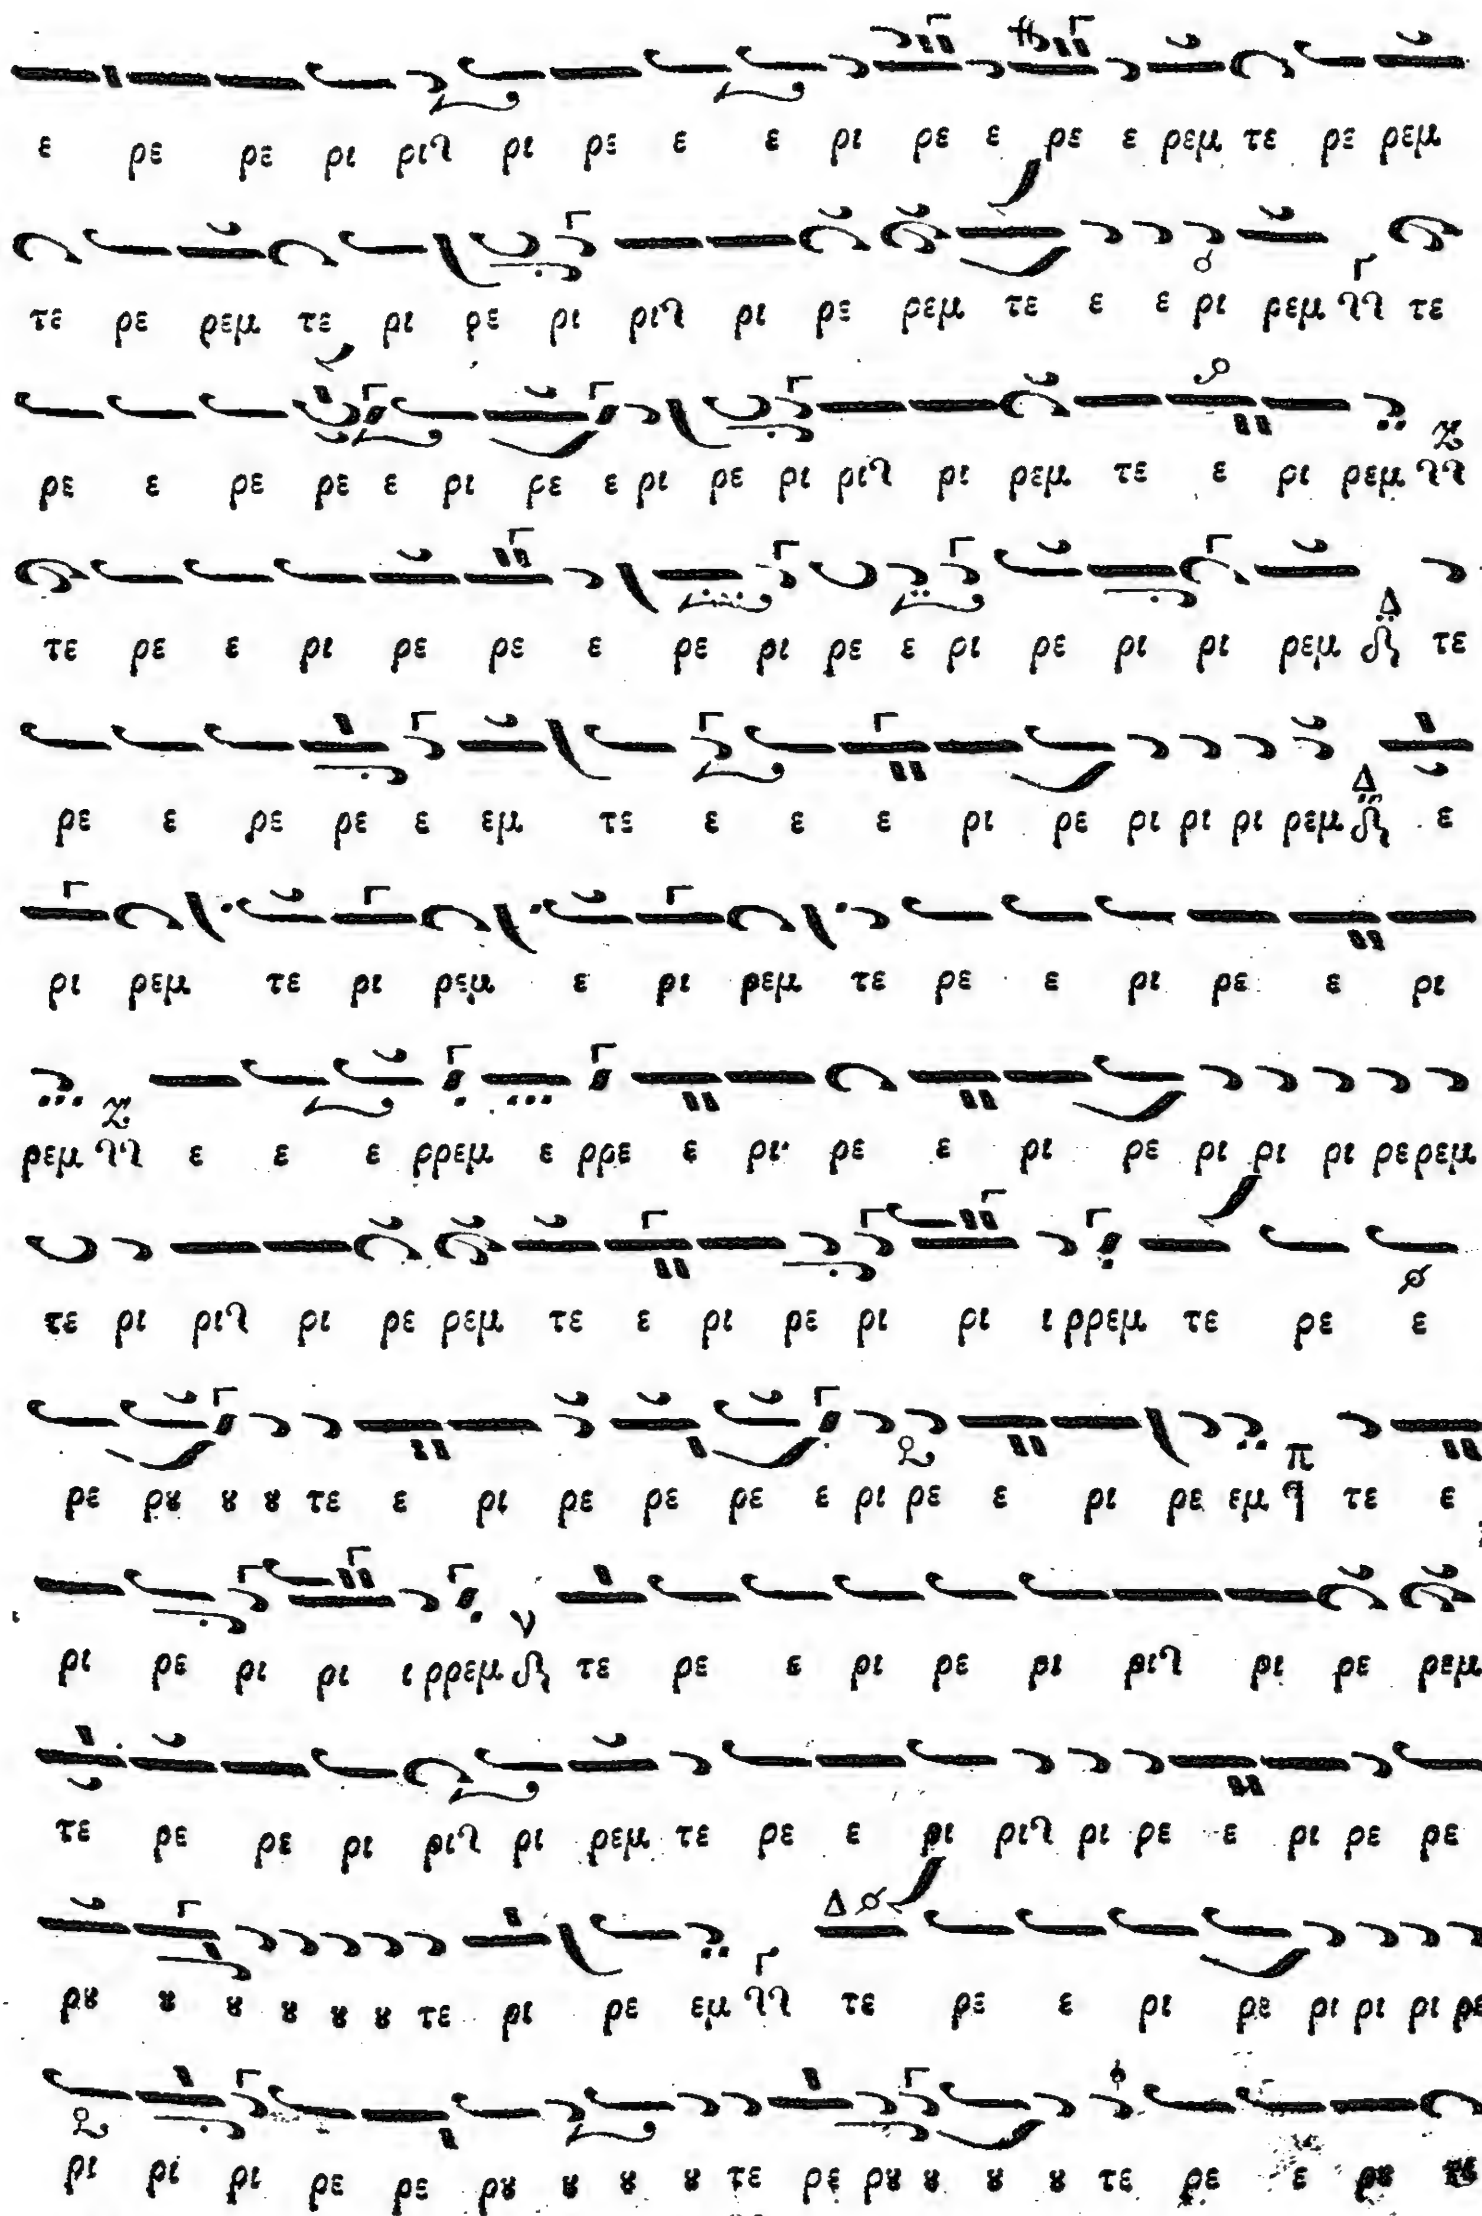 ε ρε ρε ρι ριϞ ρι ρε ε ε ρι ρε ε ρε ε ρεμ τε ρε ρεμ
τε ρε ρεμ τε ρι ρε ρι ριϞ ρι ρε ρεμ τε ε ε ρι ρεμ τε
ρε ε ρε ρε ε ρι ρε ε ρι ρε ρι ριϞ ρι ρεμ τε ε ρι ρεμ
τε ρε ε ρι ρε ρε ε ρε ρι ρε ε ρι ρε ρι ρι ρεμ Δ τε
ρε ε ρε ρε ε εμ τε ε ε ε ρι ρε ρι ρι ρι ρεμ Δ ε
ρι ρεμ τε ρι ρεμ ε ρι ρεμ τε ρε ε ρι ρε ε ρι
ρεμ ε ε ε ρρεμ ε ρρε ε ρι ρε ε ρι ρε ρι ρι ρι ρε ρεμ
τε ρι ριϞ ρι ρε ρεμ τε ε ρι ρε ρι ρι ι ρρεμ τε ρε ε
ρε ρȣ ȣ ȣ τε ε ρι ρε ρε ρε ε ρι ρε ε ρι ρε εμ π τε ε
ρι ρε ρι ρι ι ρρεμ ν τε ρε ε ρι ρε ρι ριϞ ρι ρε ρεμ
τε ρε ρε ρι ριϞ ρι ρεμ τε ρε ε ρι ριϞ ρι ρε ε ρι ρε ρε
ρȣ ȣ ȣ ȣ ȣ ȣ τε ρι ρε εμ τε ρε ε ρι ρε ρι ρι ρι ρε
ρι ρι ρι ρε ρε ρȣ ȣ ȣ ȣ τε ρε ρȣ ȣ ȣ ȣ τε ρε ε ρȣ